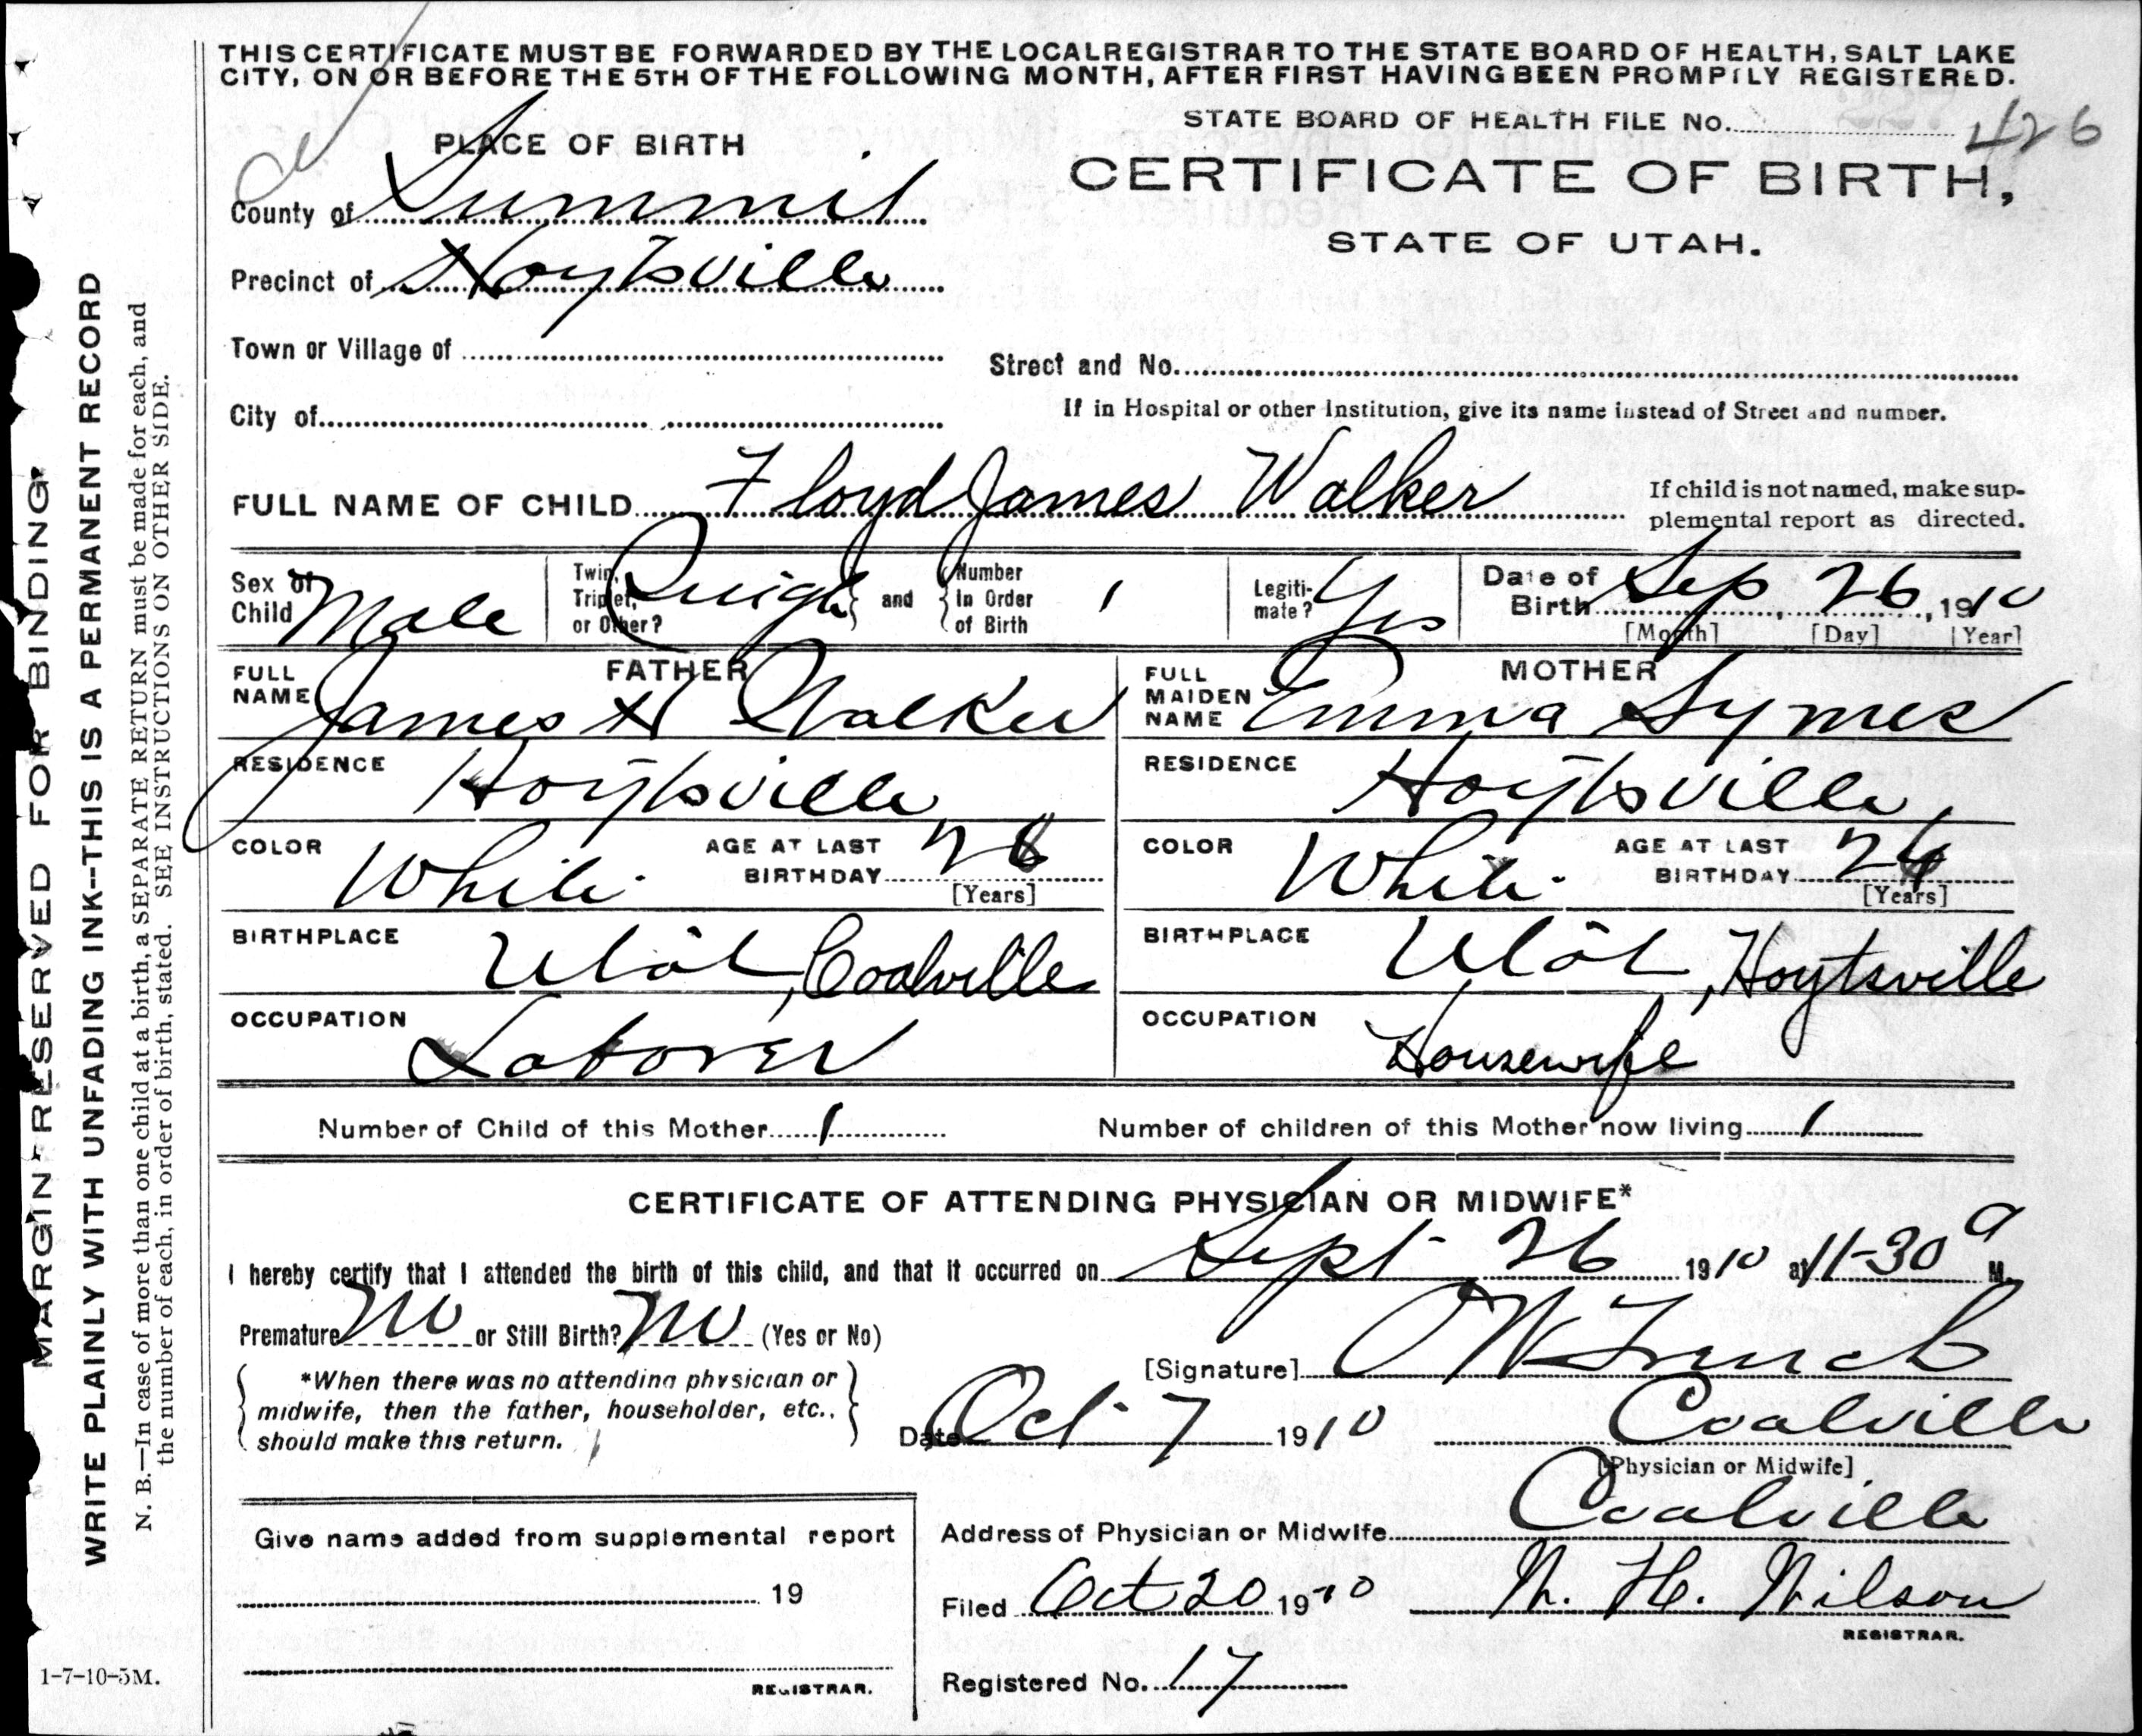 THIS CERTIFICATE MUST BE FORWARDED BY THE LOCAL REGISTRAR TO THE STATE BOARD OF HEALTH, SALT LAKE
CITY, ON OR BEFORE THE 5TH OF THE FOLLOWING MONTH, AFTER FIRST HAVING BEEN PROMPTLY REGISTERED.
STATE BOARD OF HEALTH FILE No. 426
PLACE OF BIRTH
CERTIFICATE OF BIRTH,
County of Summit
STATE OF UTAH.
Precinct of Hoytsville
Town or Village of
Street and No.
City of
If in Hospital or other Institution, give its name instead of Street and number.
FULL NAME OF CHILD Floyd James Walker
If child is not named, make sup-
plemental report as directed.
Sex of Child Male
Twin, Triplet, or Other?
and
Number In Order of Birth 1
Legiti-mate? Yes
Date of Birth Sep 26, 1910
[Month] [Day] [Year]
FATHER
FULL NAME James H Walker
MOTHER
FULL MAIDEN NAME Emma Symes
RESIDENCE Hoytsville
RESIDENCE Hoytsville
COLOR White
AGE AT LAST BIRTHDAY
[Years]
COLOR White
AGE AT LAST BIRTHDAY 24
[Years]
BIRTHPLACE Utah, Coalville
BIRTHPLACE Utah, Hoytsville
OCCUPATION Laborer
OCCUPATION Housewife
Number of Child of this Mother 1
Number of children of this Mother now living 1
CERTIFICATE OF ATTENDING PHYSICIAN OR MIDWIFE*
I hereby certify that I attended the birth of this child, and that it occurred on Sept 26 1910 at 11-30 a M.
Premature No or Still Birth? No (Yes or No)
[Signature]
*When there was no attending physician or
midwife, then the father, householder, etc.,
should make this return.
Date Oct 7 1910 Coalville
[Physician or Midwife]
Address of Physician or Midwife Coalville
Give name added from supplemental report
19
REGISTRAR.
Filed Oct 20 1910 N. H. Wilson
REGISTRAR.
Registered No. 17
1-7-10-5M.
MARGIN RESERVED FOR BINDING
WRITE PLAINLY WITH UNFADING INK--THIS IS A PERMANENT RECORD
N. B.—In case of more than one child at a birth, a SEPARATE RETURN must be made for each, and
the number of each, in order of birth, stated. SEE INSTRUCTIONS ON OTHER SIDE.